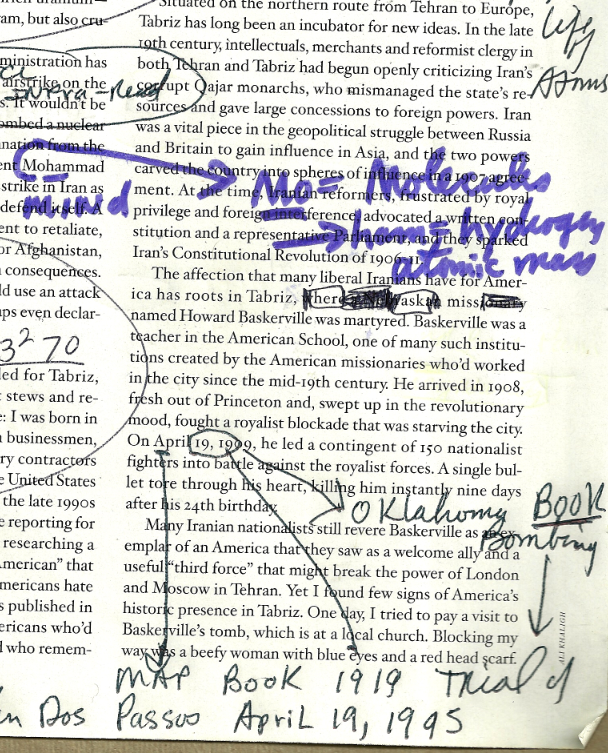 ram, but also cru-
ministration has
airstrike on the
s. It wouldn't be
ombed a nuclear
nation from the
ent Mohammad
strike in Iran as
defend itself. A
ent to retaliate,
or Afghanistan,
n consequences.
ld use an attack
ups even declar-
3²70
led for Tabriz,
stews and re-
e: I was born in
n businessmen,
ry contractors
e United States
the late 1990s
e reporting for
researching a
merican" that
mericans hate
s published in
ericans who'd
d who remem-
Situated on the northern route from Tehran to Europe,
Tabriz has long been an incubator for new ideas. In the late
19th century, intellectuals, merchants and reformist clergy in
both Tehran and Tabriz had begun openly criticizing Iran's
corrupt Qajar monarchs, who mismanaged the state's re-
sources and gave large concessions to foreign powers. Iran
was a vital piece in the geopolitical struggle between Russia
and Britain to gain influence in Asia, and the two powers
carved the country into spheres of influence in a 1907 agree-
ment. At the time, Iranian reformers, frustrated by royal
privilege and foreign interference, advocated a written con-
stitution and a representative Parliament, and they sparked
Iran's Constitutional Revolution of 1906-11.
The affection that many liberal Iranians have for Amer-
ica has roots in Tabriz, here askan mission
named Howard Baskerville was martyred. Baskerville was a
teacher in the American School, one of many such institu-
tions created by the American missionaries who'd worked
in the city since the mid-19th century. He arrived in 1908,
fresh out of Princeton and, swept up in the revolutionary
mood, fought a royalist blockade that was starving the city.
On April 19, 1909, he led a contingent of 150 nationalist
fighters into battle against the royalist forces. A single bul-
let tore through his heart, killing him instantly nine days
after his 24th birthday.
Many Iranian nationalists still revere Baskerville as an ex-
emplar of an America that they saw as a welcome ally and a
useful "third force" that might break the power of London
and Moscow in Tehran. Yet I found few signs of America's
historic presence in Tabriz. One day, I tried to pay a visit to
Baskerville's tomb, which is at a local church. Blocking my
way was a beefy woman with blue eyes and a red head scarf.
ALI KHALIGH
Atoms
mind
Mo = Molecules
ham = hydrogen
atomic mass
Oklahoma BOOK
Bombing
MAP BOOK 1919 Trial of
Dos Passos April 19, 1995